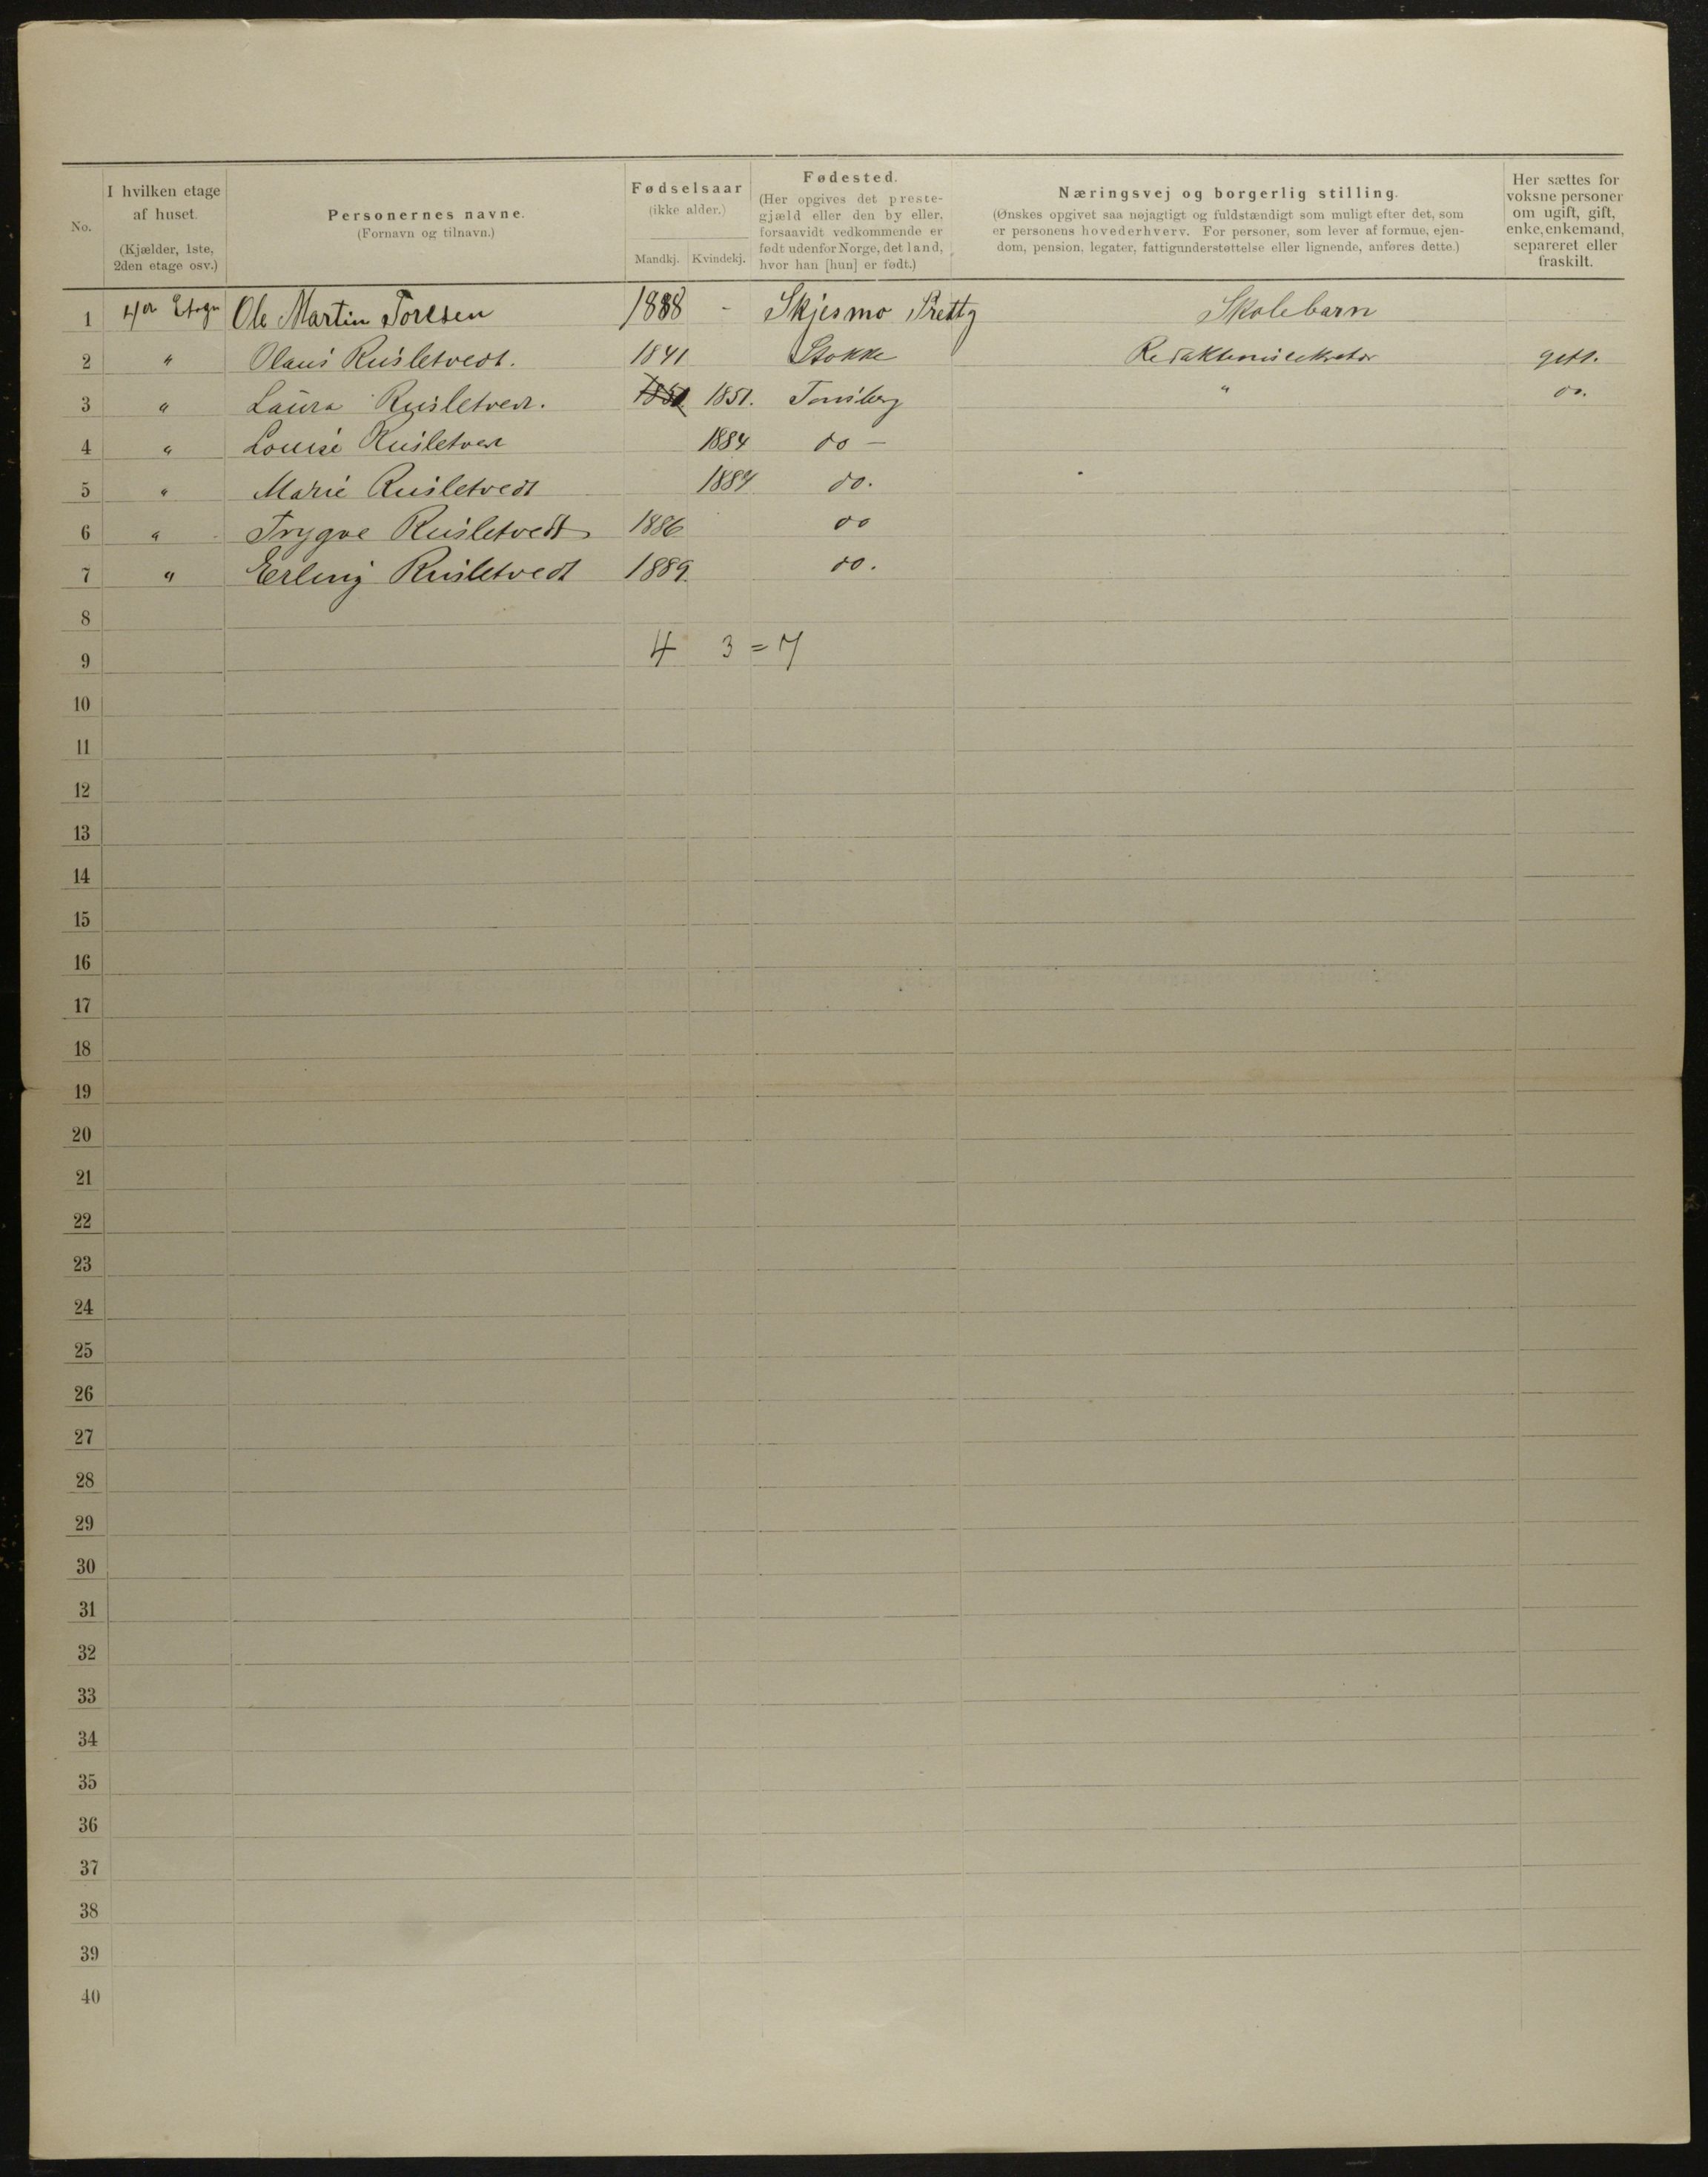 No.
I hvilken etage
af huset.
(Kjælder, 1ste,
2den etage osv.)
Personernes navne.
(Fornavn og tilnavn.)
Fødselsaar
(ikke alder.)
Mandkj. Kvindekj.
Fødested.
(Her opgives det preste-
gjæld eller den by eller,
forsaavidt vedkommende er
født udenfor Norge, det land,
hvor han [hun] er født.)
Næringsvej og borgerlig stilling.
(Ønskes opgivet saa nøjagtigt og fuldstændigt som muligt efter det, som
er personens hovederhverv. For personer, som lever af formue, ejen-
dom, pension, legater, fattigunderstøttelse eller lignende, anføres dette.)
Her sættes for
voksne personer
om ugift, gift,
enke, enkemand,
separeret eller
fraskilt.
1 4de Etage Ole Martin Toresen 1888 - Skjesmo Skolebarn
2 " Olaus Ruisletvedt. 1841 Stokke gift.
3 " Laura 1851. Tønsberg " do.
4 " Louise 1884 do —
5 " Marie Ruisletvedt 1884 do.
6 " Trygve Ruisletvedt 1886 do
7 " Erling Ruisletvedt 1889. do.
8
4 3 = 7
9
10
11
12
13
14
15
16
17
18
19
20
21
22
23
24
25
26
27
28
29
30
31
32
33
34
35
36
37
38
39
40